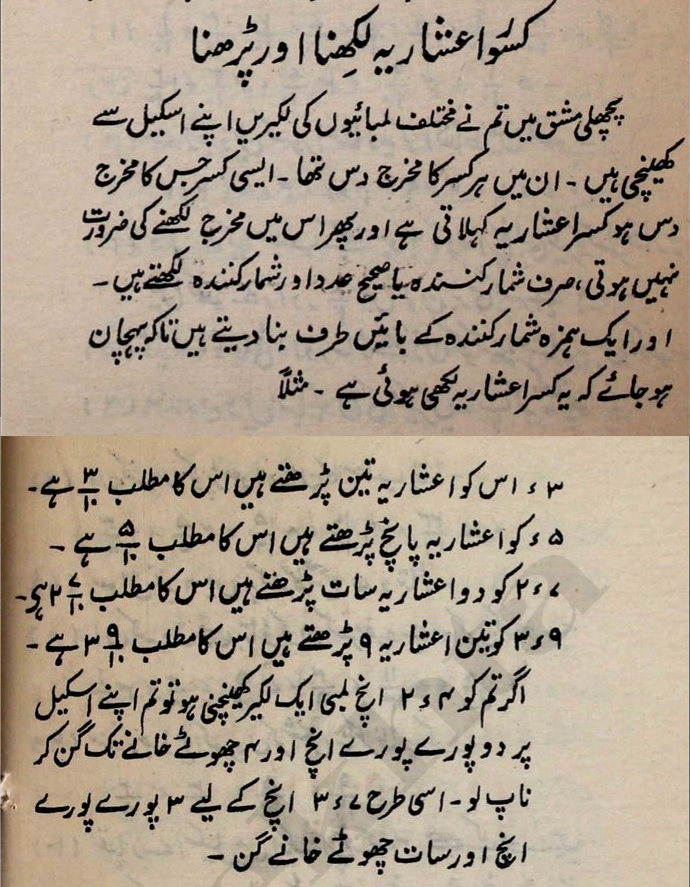 کسورِ اعشاریہ لکھنا اور پڑھنا
پچھلی مشق میں تم نے مختلف لمبائیوں کی لکیریں اپنے اسکیل سے
کھینچی ہیں ۔ ان میں ہر کسر کا مخرج دس تھا ۔ ایسی کسر جس کا مخرج
دس ہو کسر اعشاریہ کہلاتی ہے اور پھر اس میں مخرج لکھنے کی ضرورت
نہیں ہوتی ، صرف شمار کنندہ یا صحیح عدد اور شمار کنندہ لکھتے ہیں ۔
اور ایک ہمزہ شمار کنندہ کے بائیں طرف بنا دیتے ہیں تاکہ پہچان
ہو جائے کہ یہ کسر اعشاریہ لکھی ہوئی ہے ۔ مثلاً
۳ء اس کو اعشاریہ تین پڑھتے ہیں اس کا مطلب ۳/۱۰ ہے ۔
۵ء کو اعشاریہ پانچ پڑھتے ہیں اس کا مطلب ۵/۱۰ ہے ۔
۷ء۲ کو دو اعشاریہ سات پڑھتے ہیں اس کا مطلب ۲ ۷/۱۰ ہی ۔
۹ء۳ کو تین اعشاریہ ۹ پڑھتے ہیں اس کا مطلب ۳ ۹/۱۰ ہے ۔
اگر تم کو ۴ء۲ انچ لمبی ایک لکیر کھینچنی ہو تو تم اپنے اسکیل
پر دو پورے پورے انچ اور ۴ چھوٹے خانے تک گن کر
ناپ لو ۔ اسی طرح ۷ء۳ انچ کے لیے ۳ پورے پورے
انچ اور سات چھوٹے خانے گن ۔